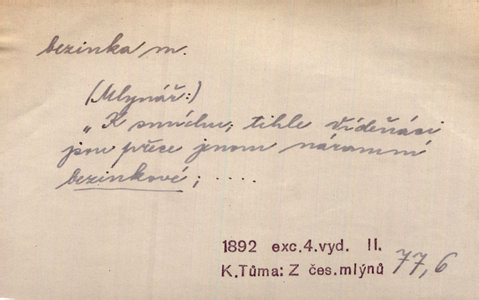 bezinka m.
(Mlynář:)
„K smíchu; tihle Vídeňáci
jsou přece jenom náramní
bezinkové; ....
1892 exc.4.vyd. II.
K.Tůma: Z čes.mlýnů 77,6